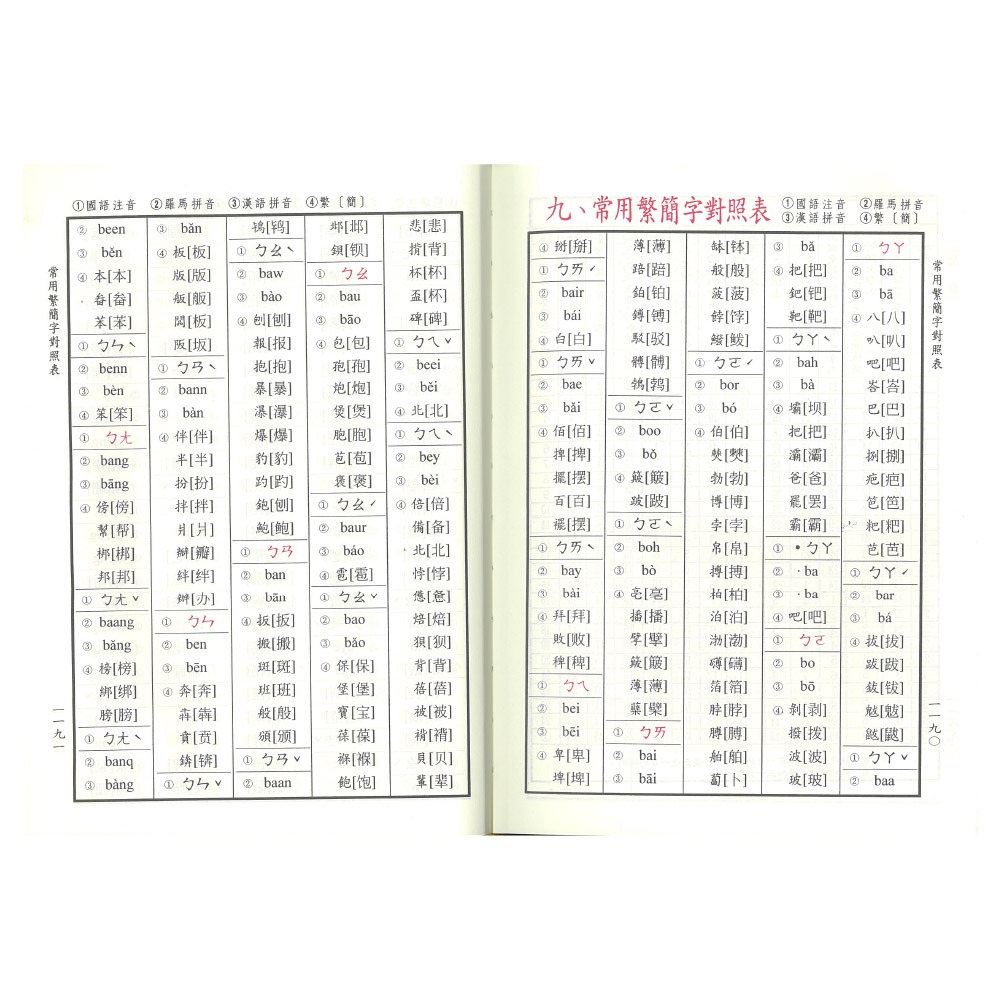 九、常用繁簡字對照表
①國語注音 ②羅馬拼音
③漢語拼音 ④繁〔簡〕
常用繁簡字對照表
一一九〇
① ㄅㄚ
② ba
③ bā
④ 八[八]
叭[叭]
吧[吧]
峇[峇]
巴[巴]
扒[扒]
捌[捌]
疤[疤]
笆[笆]
粑[粑]
芭[芭]
① ㄅㄚˊ
② bar
③ bá
④ 拔[拔]
跋[跋]
鈸[钹]
魃[魃]
鼥[鼥]
① ㄅㄚˇ
② baa
③ bǎ
④ 把[把]
鈀[钯]
靶[靶]
① ㄅㄚˋ
② bah
③ bà
④ 壩[坝]
把[把]
灞[灞]
爸[爸]
罷[罢]
霸[霸]
① •ㄅㄚ
② ·ba
③ ·ba
④ 吧[吧]
① ㄅㄛ
② bo
③ bō
④ 剝[剥]
撥[拨]
波[波]
玻[玻]
缽[钵]
般[般]
菠[菠]
餑[饽]
① ㄅㄛˊ
② bor
③ bó
④ 伯[伯]
僰[僰]
勃[勃]
博[博]
孛[孛]
帛[帛]
搏[搏]
柏[柏]
泊[泊]
渤[渤]
礡[礴]
箔[箔]
脖[脖]
膊[膊]
舶[舶]
蔔[卜]
薄[薄]
踣[踣]
鉑[铂]
鎛[镈]
駁[驳]
髆[髆]
鵓[鹁]
① ㄅㄛˇ
② boo
③ bǒ
④ 簸[簸]
跛[跛]
① ㄅㄛˋ
② boh
③ bò
④ 亳[亳]
播[播]
擘[擘]
簸[簸]
薄[薄]
蘗[檗]
① ㄅㄞ
② bai
③ bāi
④ 掰[掰]
① ㄅㄞˊ
② bair
③ bái
④ 白[白]
① ㄅㄞˇ
② bae
③ bǎi
④ 佰[佰]
捭[捭]
擺[摆]
百[百]
襬[摆]
① ㄅㄞˋ
② bay
③ bài
④ 拜[拜]
敗[败]
稗[稗]
① ㄅㄟ
② bei
③ bēi
④ 卑[卑]
埤[埤]
①國語注音 ②羅馬拼音 ③漢語拼音 ④繁〔簡〕
悲[悲]
揹[背]
杯[杯]
盃[杯]
碑[碑]
① ㄅㄟˇ
② beei
③ běi
④ 北[北]
① ㄅㄟˋ
② bey
③ bèi
④ 倍[倍]
備[备]
北[北]
悖[悖]
憊[惫]
焙[焙]
狽[狈]
背[背]
蓓[蓓]
被[被]
褙[褙]
貝[贝]
輩[辈]
邶[邶]
鋇[钡]
① ㄅㄠ
② bau
③ bāo
④ 包[包]
孢[孢]
炮[炮]
煲[煲]
胞[胞]
苞[苞]
褒[褒]
① ㄅㄠˊ
② baur
③ báo
④ 雹[雹]
① ㄅㄠˇ
② bao
③ bǎo
④ 保[保]
堡[堡]
寶[宝]
葆[葆]
褓[褓]
飽[饱]
鴇[鸨]
① ㄅㄠˋ
② baw
③ bào
④ 刨[刨]
報[报]
抱[抱]
暴[暴]
瀑[瀑]
爆[爆]
豹[豹]
趵[趵]
鉋[刨]
鮑[鲍]
① ㄅㄢ
② ban
③ bān
④ 扳[扳]
搬[搬]
斑[斑]
班[班]
般[般]
頒[颁]
① ㄅㄢˇ
② baan
③ bǎn
④ 板[板]
版[版]
舨[舨]
闆[板]
阪[坂]
① ㄅㄢˋ
② bann
③ bàn
④ 伴[伴]
半[半]
扮[扮]
拌[拌]
爿[爿]
瓣[瓣]
絆[绊]
辦[办]
① ㄅㄣ
② ben
③ bēn
④ 奔[奔]
犇[犇]
賁[贲]
錛[锛]
① ㄅㄣˇ
② been
③ běn
④ 本[本]
畚[畚]
苯[苯]
① ㄅㄣˋ
② benn
③ bèn
④ 笨[笨]
① ㄅㄤ
② bang
③ bāng
④ 傍[傍]
幫[帮]
梆[梆]
邦[邦]
① ㄅㄤˇ
② baang
③ bǎng
④ 榜[榜]
綁[绑]
膀[膀]
① ㄅㄤˋ
② banq
③ bàng
常用繁簡字對照表
一一九一